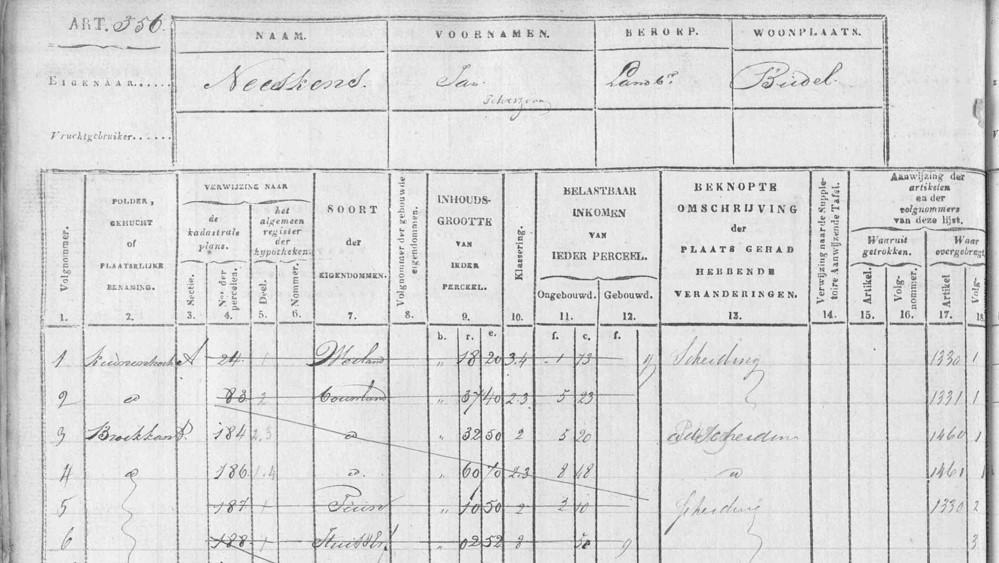 ART. 356.
NAAM. VOORNAMEN. BEROEP. WOONPLAATS.
EIGENAAR...... Neeskens. Jan Landb.r Budel.
Vruchtgebruiker......
Volgnummer.
POLDER, GEHUCHT OF PLAATSELIJKE BENAMING.
VERWIJZING NAAR
de kadastrale plans.
het algemeen register der hypotheken.
Sectie. Nos der percelen. Deel. Nommer.
SOORT der EIGENDOMMEN.
Volgnommer der gebouwde eigendommen.
INHOUDS-GROOTTE VAN IEDER PERCEEL.
Klassering.
BELASTBAAR INKOMEN VAN IEDER PERCEEL.
Ongebouwd. Gebouwd.
BEKNOPTE OMSCHRIJVING der PLAATS GEHAD HEBBENDE VERANDERINGEN.
Verwijzing naar de Suppletoire Aanwijzende Tafel.
Aanwijzing der artikelen en der volgnommers van deze lijst.
Waaruit getrokken. Waar overgebragt
Artikel. Volg-nommer. Artikel Volg-
1. 2. 3. 4. 5. 6. 7. 8. 9. 10. 11. 12. 13. 14. 15. 16. 17. 18
b. r. e. f. c. f.
1 A 24 1 " 18 20 3.4 1 73 Scheiding 1330 1
2 " 83 2 " 37 40 2.3 5 23 1331 1
3 184 2.3 " " 32 50 2 5 20 1460 1
4 " 186 1.4 " " 60 70 2.3 8 48 " 1461 1
5 187 1 " 10 50 2 2 10 Scheiding 1330 2
6 188 1 " 02 52 3